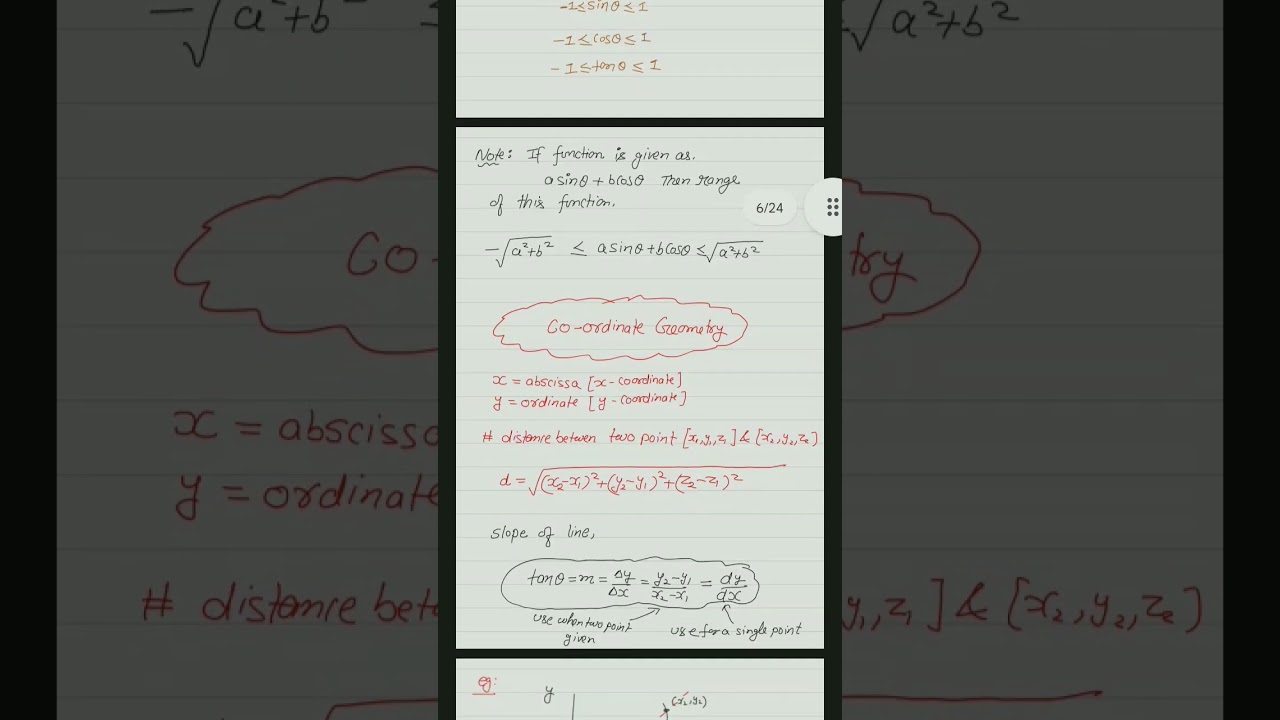 -1≤sinθ≤1
-1≤cosθ≤1
-1≤tanθ≤1
Note: If function is given as.
asinθ+bcosθ Then range
of this function.
6/24
-√a²+b² ≤ asinθ+bcosθ ≤√a²+b²
Co-ordinate Geometry
x = abscissa [x-coordinate]
y = ordinate [y-coordinate]
# distance between two point [x₁,y₁,z₁] & [x₂,y₂,z₂]
d = √(x₂-x₁)²+(y₂-y₁)²+(z₂-z₁)²
slope of line,
tanθ = m = Δy/Δx = y₂-y₁/x₂-x₁ = dy/dx
use when two point
given
use for a single point
eg:
y
(x₂,y₂)
-√a²+b
√a²+b²
Co-
try
x = abscissa
y = ordinate
# distance betw
y₁,z₁] & [x₂,y₂,z₂]